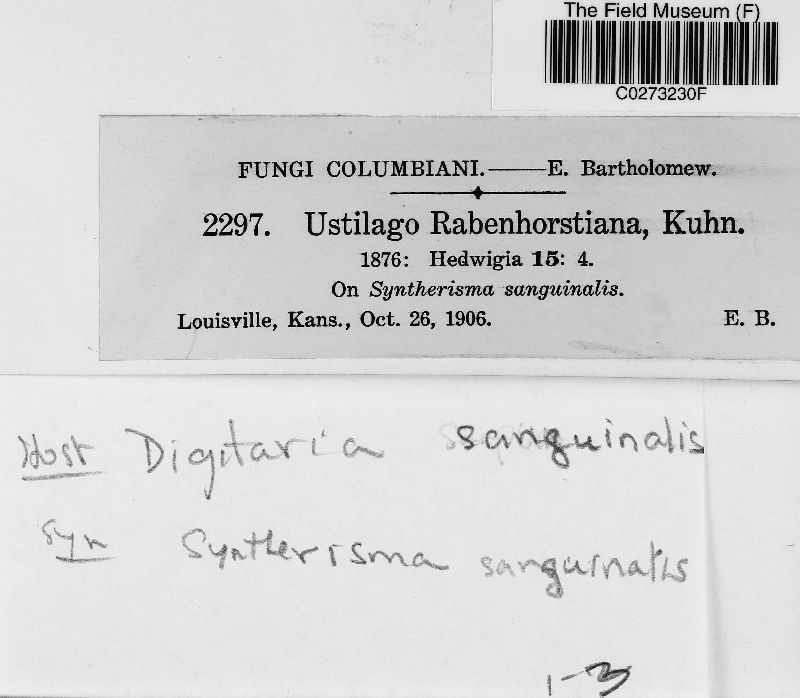 The Field Museum (F)
C0273230F
FUNGI COLUMBIANI.——E. Bartholomew.
2297. Ustilago Rabenhorstiana, Kuhn.
1876: Hedwigia 15: 4.
On Syntherisma sanguinalis.
Louisville, Kans., Oct. 26, 1906. E. B.
Host Digitaria sanguinalis
Syn Syntherisma sanguinalis
1-3